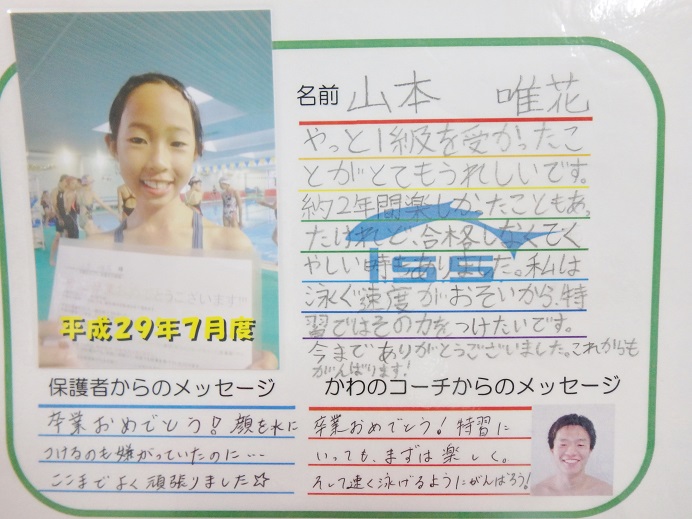 名前 山本 唯花
やっと1級を受かったこ
とがとてもうれしいです。
約2年間楽しかたこともあっ
たけれど、合格しなくてく
やしい時もありました。私は
泳ぐ速度がおそいから、特
習ではその力をつけたいです。
今までありがとうございました。これからも
がんばります!
ISS
平成29年7月度
保護者からのメッセージ
卒業おめでとう! 顔を水に
つけるのも嫌がっていたのに…
ここまでよく頑張りました☆
かわのコーチからのメッセージ
卒業おめでとう! 特習に
いっても、まずは楽しく。
そして速く泳げるようにがんばろう!